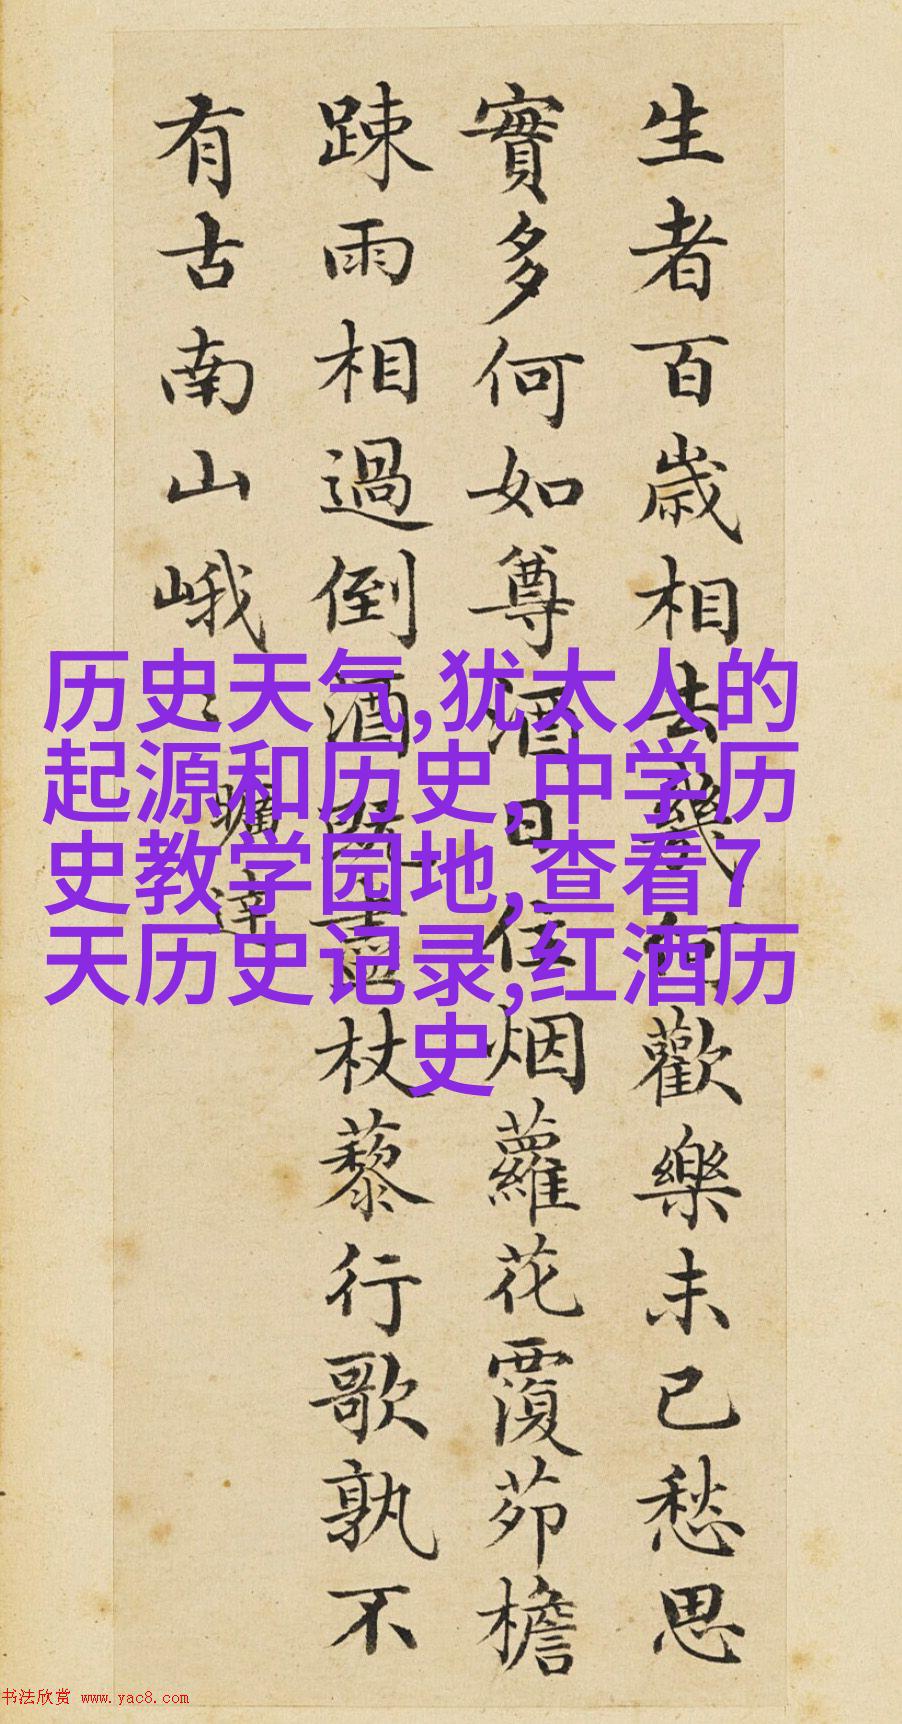 生者百歲相去幾何歡樂未已愁思
實多何如尊酒日往烟蘿花覆茆檐
踈雨相過倒酒既盡杖藜行歌孰不
有古南山峨〻曠達
历史天气,犹太人的
起源和历史,中学历
史教学园地,查看7
天历史记录,红酒历
史
书法欣赏 www.yac8.com